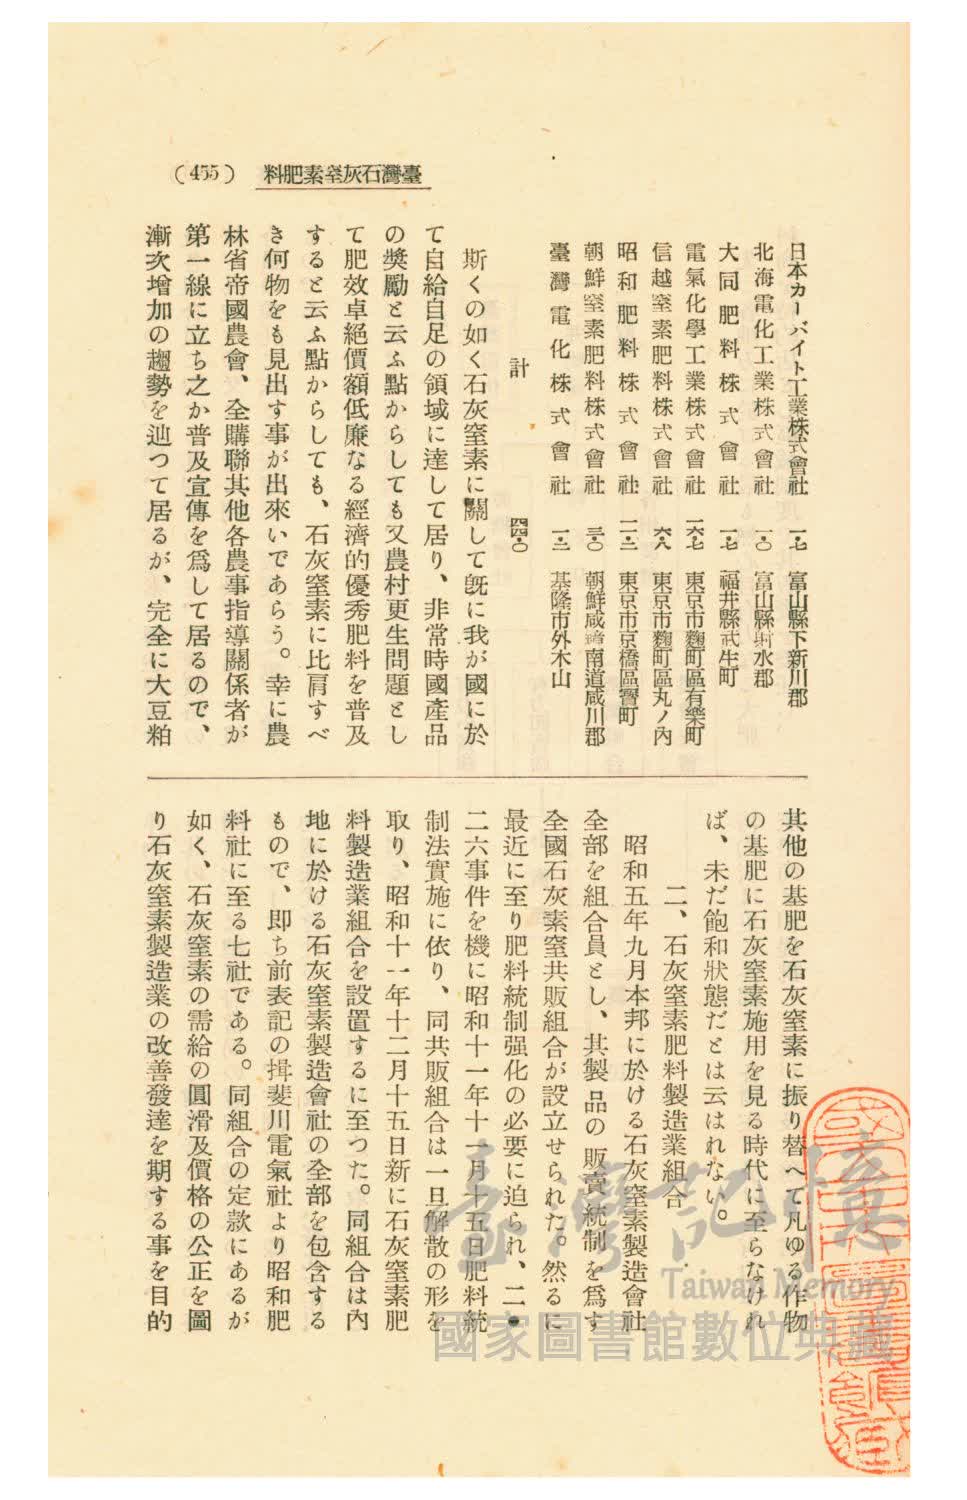 臺灣石灰窒素肥料
(455)
日本カーバイト工業株式會社 一・七 富山縣下新川郡
北海電化工業株式會社 一・〇 富山縣射水郡
大同肥料株式會社 一・七 福井縣武生町
電氣化學工業株式會社 一六・七 東京市麴町區有樂町
信越窒素肥料株式會社 六・八 東京市麴町區丸ノ內
昭和肥料株式會社 一一・二 東京市京橋區寶町
朝鮮窒素肥料株式會社 三・〇 朝鮮咸鏡南道咸川郡
臺灣電化株式會社 一・二 基隆市外木山
計 四四・〇
斯くの如く石灰窒素に關して旣に我が國に於
て自給自足の領域に達して居り、非常時國產品
の獎勵と云ふ點からしても又農村更生問題とし
て肥效卓絕價額低廉なる經濟的優秀肥料を普及
すると云ふ點からしても、石灰窒素に比肩すべ
き何物をも見出す事が出來いであらう。幸に農
林省帝國農會、全購聯其他各農事指導關係者が
第一線に立ち之か普及宣傳を爲して居るので、
漸次增加の趨勢を辿つて居るが、完全に大豆粕
其他の基肥を石灰窒素に振り替へて凡ゆる作物
の基肥に石灰窒素施用を見る時代に至らなけれ
ば、未だ飽和狀態だとは云はれない。
二、石灰窒素肥料製造業組合
昭和五年九月本邦に於ける石灰窒素製造會社
全部を組合員とし、其製品の販賣統制を爲す
全國石灰素窒共販組合が設立せられた。然るに
最近に至り肥料統制强化の必要に迫られ、二・
二六事件を機に昭和十一年十一月十五日肥料統
制法實施に依り、同共販組合は一旦解散の形を
取り、昭和十一年十二月十五日新に石灰窒素肥
料製造業組合を設置するに至つた。同組合は內
地に於ける石灰窒素製造會社の全部を包含する
もので、卽ち前表記の揖斐川電氣社より昭和肥
料社に至る七社である。同組合の定款にあるが
如く、石灰窒素の需給の圓滑及價格の公正を圖
り石灰窒素製造業の改善發達を期する事を目的
臺灣記憶
Taiwan Memory
國家圖書館數位典藏